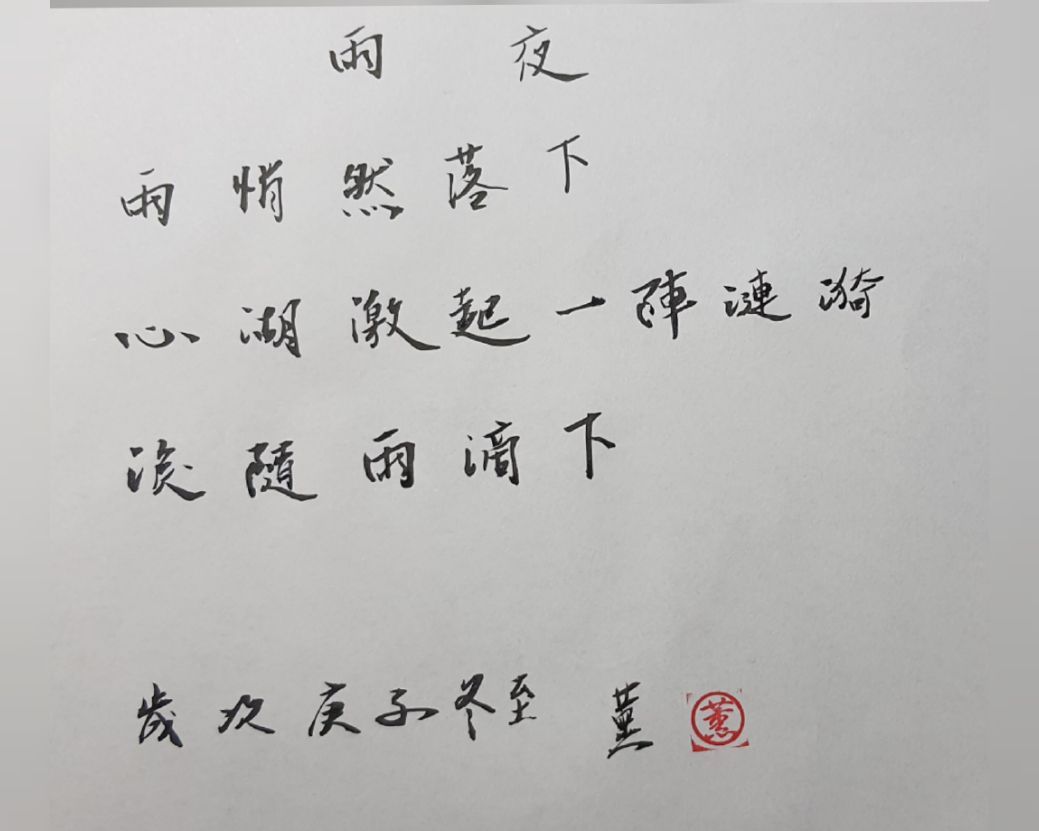 雨夜
雨悄然落下
心湖激起一陣漣漪
淚隨雨滴下
歲次庚子冬至 薰